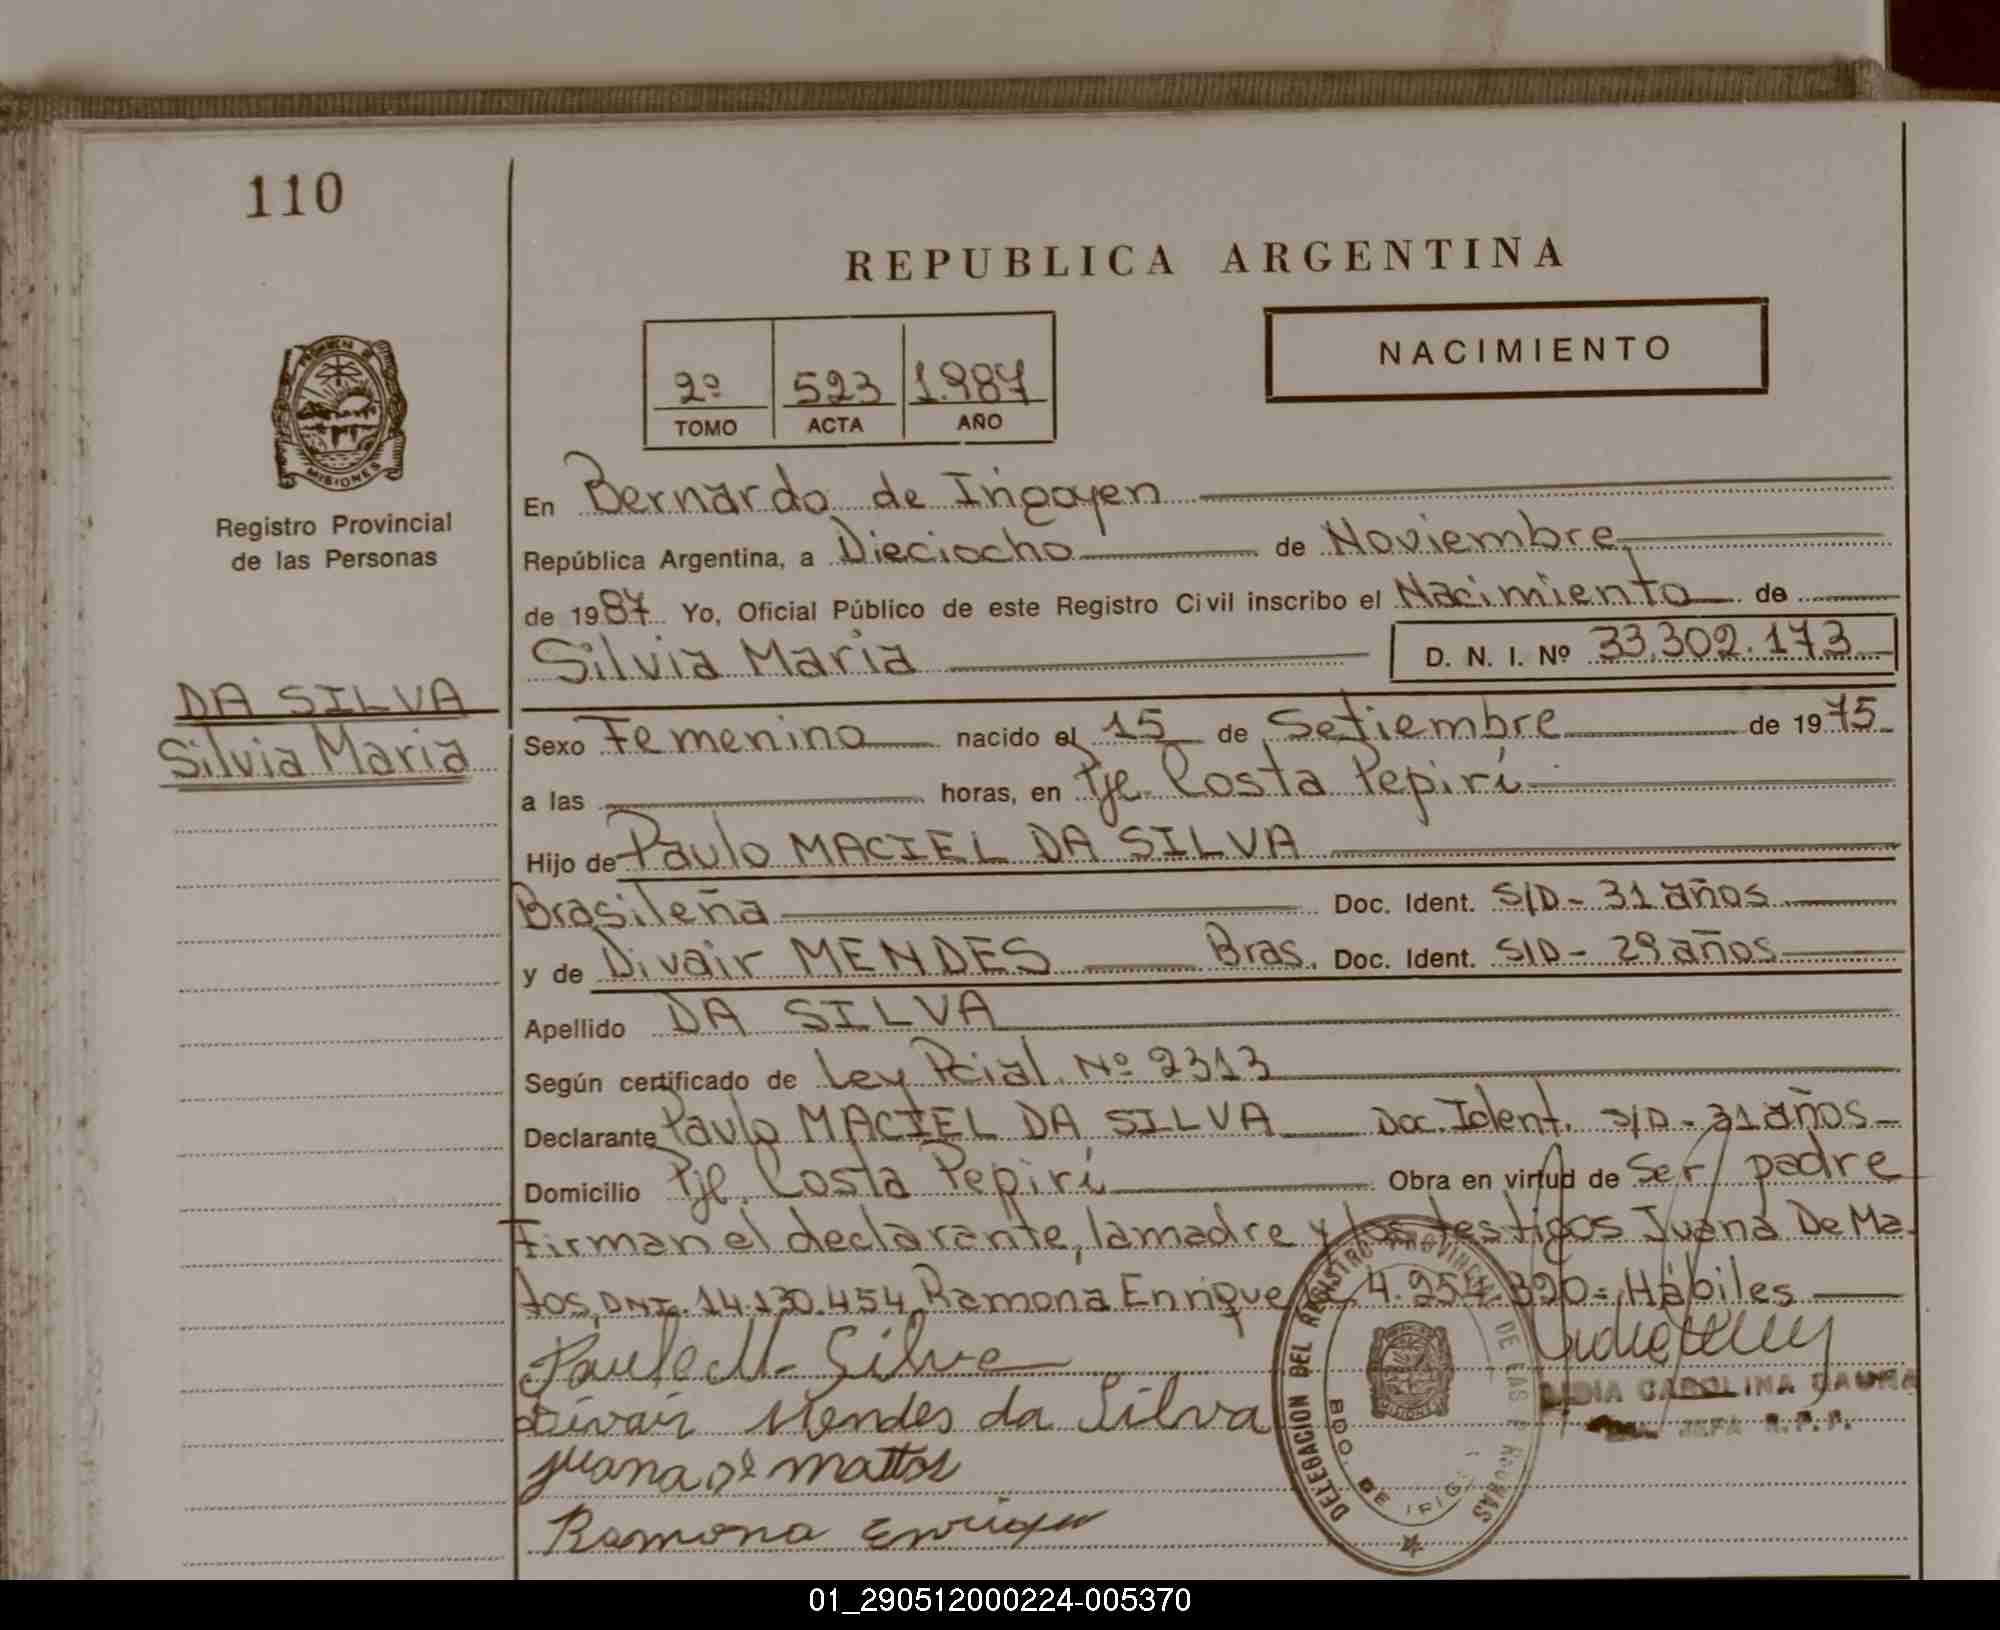 110
REPUBLICA ARGENTINA
NACIMIENTO
2º 523 1.987
TOMO ACTA AÑO
PROVINCIA DE
MISIONES
Registro Provincial
de las Personas
DA SILVA
Silvia Maria
En Bernardo de Irigoyen
República Argentina, a Dieciocho de Noviembre
de 1987 Yo, Oficial Público de este Registro Civil inscribo el Nacimiento de
Silvia Maria D. N. I. Nº 33.302.173
Sexo Femenino nacido el 15 de Setiembre de 1975
a las horas, en Pje. Costa Pepirí
Hijo de Paulo MACIEL DA SILVA
Brasileña Doc. Ident. S/D - 31 años
y de Divair MENDES Bras. Doc. Ident. S/D - 29 años
Apellido DA SILVA
Según certificado de Ley Pcial. Nº 2313
Declarante Paulo MACIEL DA SILVA Doc. Ident. S/D - 31 años
Domicilio Pje. Costa Pepirí Obra en virtud de Ser padre
Firman el declarante, la madre y los testigos Juana De Ma
tos, DNI. 14.130.454, Ramona Enrique 4.254.390 = Hábiles
Paulo M. Silva
Divair Mendes da Silva
Juana de mattos
Ramona Enrique
DELEGACION DEL REGISTRO PROVINCIAL DE LAS PERSONAS
BDO. DE IRIGOYEN
LIDIA CAROLINA
JEFA R.P.P.
01_290512000224-005370